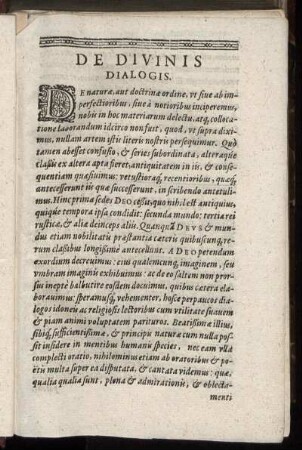 DE DIVINIS
DIALOGIS.
DE naturæ, aut doctrinæ ordine, vt siue ab im-
perfectioribus, siue à notioribus inciperemus,
nobis in hoc materiarum delectu, atq; colloca-
tione laborandum idcirco non fuit, quod, vt supra dixi-
mus, nullam artem istis literis nostris persequimur. Quò
tamen abesset confusio, & series subordinata, alteraque
classis ex altera apta fieret, antiquitatem in iis, & conse-
quentiam quæsiuimus: vetustioraq; recentioribus, quæq;
antecesserunt iis quæ successerunt, in scribendo antetuli-
mus. Hinc prima sedes DEO cessit, quo nihil est antiquius,
quique tempora ipsa condidit: secunda mundo: tertia rei
rusticæ, & alia deinceps aliis. Quanquã DEVS & mundus
etiam nobilitate præstantia cæteris quibusunq; re-
rum classibus longissimè antecelluit. A DEO perendum
exordium decreuimus: eius qualemcunq; imaginem, seu
vmbram imaginis exhibuimus: ac de eo saltem non pror-
sus inepte balbutire eosdem docuimus, quibus cætera ela-
borauimus: speramusq; vehementer, hosce perpaucos dia-
logos idoneos ac religiosis lectoribus cum vtilitate suauem
& piam animi voluptatem parituros. Beatissimæ illius,
sibiq; sufficientissimæ, & principis naturæ cum nulla pos-
sit insidere in mentibus humanis species, nec eam vlla
complecti oratio, nihilominus etiam ab oratoribus & poë-
tis multa super ea disputata, & cantata videmus: quæ,
qualia qualia sunt, plena & admirationis, & oblecta-
menti